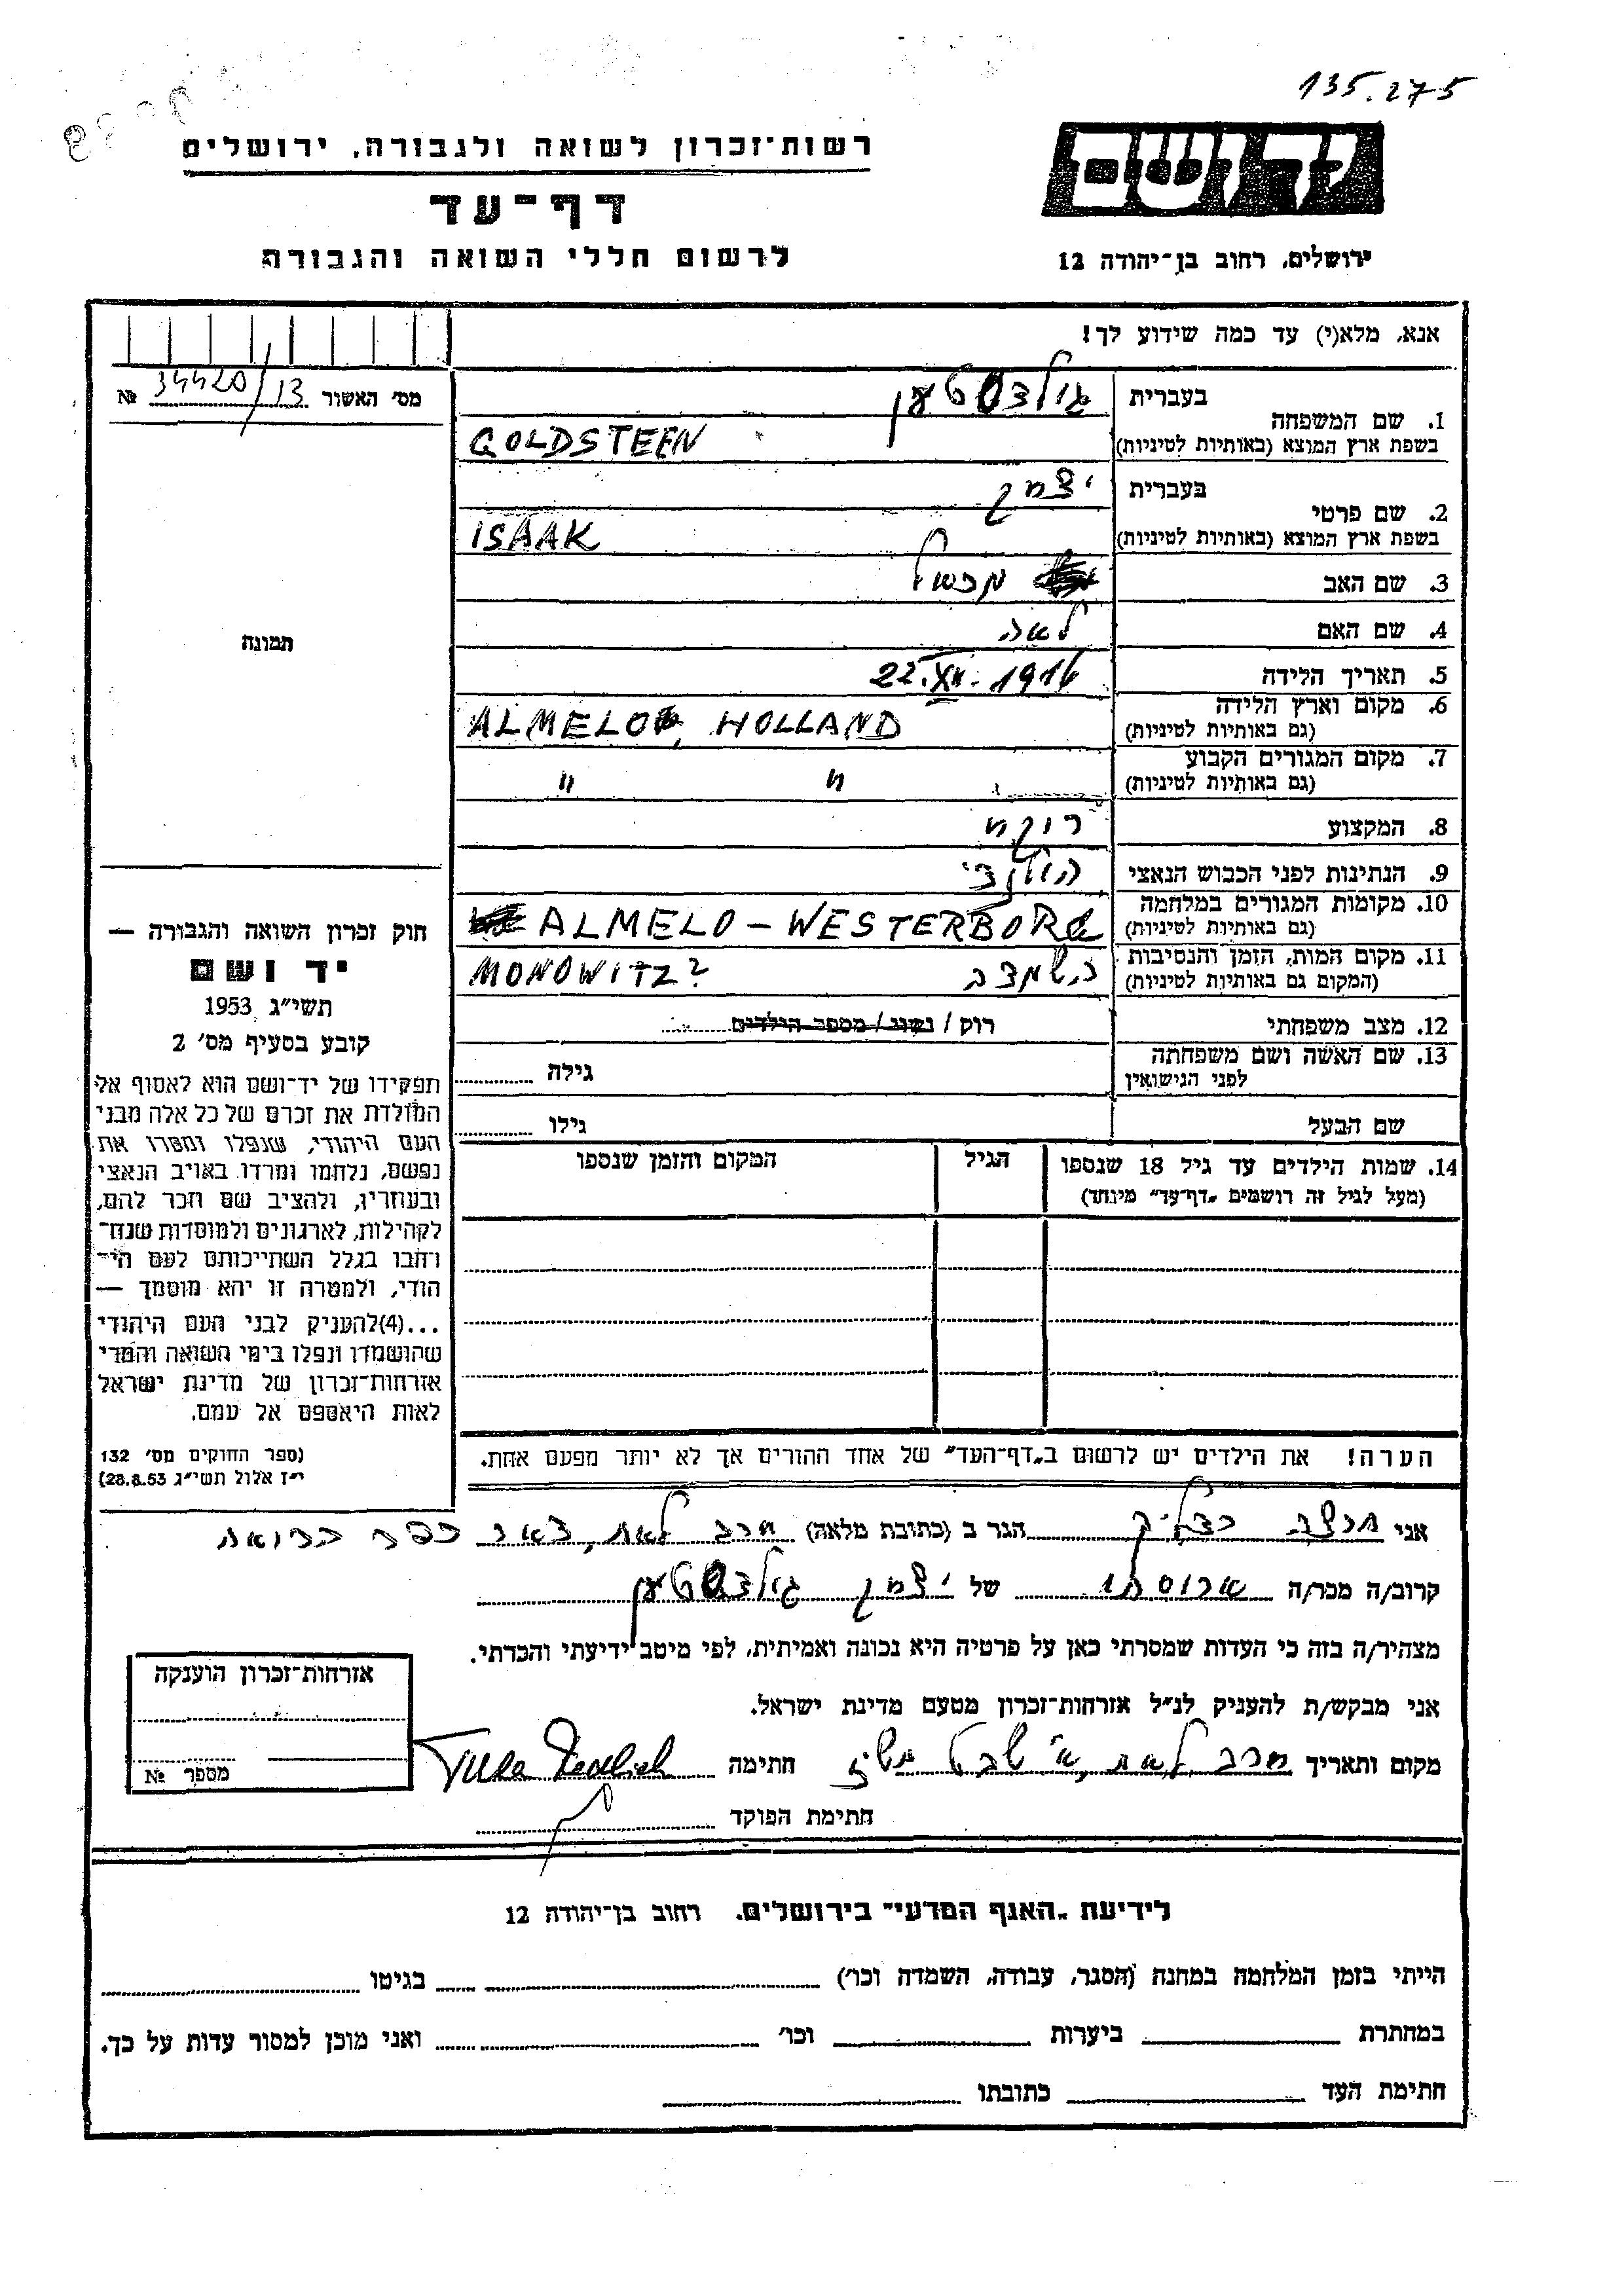 135.275
רשות־זכרון לשואה ולגבורה, ירושלים
דף־עד
לרשום חללי השואה והגבורה
יד ושם
ירושלים, רחוב בן־יהודה 12
אנא, מלא(י) עד כמה שידוע לך!
מס׳ האשור 34420/13 №
1. שם המשפחה
בעברית גולדסטען
בשפת ארץ המוצא (באותיות לטיניות) GOLDSTEEN
2. שם פרטי
בעברית יצחק
בשפת ארץ המוצא (באותיות לטיניות) ISAAK
3. שם האב
4. שם האם לאה
5. תאריך הלידה 22.XII.1916
6. מקום וארץ הלידה
(גם באותיות לטיניות) ALMELO, HOLLAND
7. מקום המגורים הקבוע
(גם באותיות לטיניות) " "
8. המקצוע רוקח
9. הנתינות לפני הכבוש הנאצי הולנדי
10. מקומות המגורים במלחמה
(גם באותיות לטיניות) ALMELO - WESTERBORG
11. מקום המות, הזמן והנסיבות
(המקום גם באותיות לטיניות) MONOWITZ?
12. מצב משפחתי רוק / נשוי / מספר הילדים
13. שם האשה ושם משפחתה
לפני הנישואין גילה
שם הבעל גילו
14. שמות הילדים עד גיל 18 שנספו
(מעל לגיל זה רושמים „דף־עד" מיוחד)
הגיל
המקום והזמן שנספו
הערה! את הילדים יש לרשום ב„דף־העד" של אחד ההורים אך לא יותר מפעם אחת.
תמונה
חוק זכרון השואה והגבורה —
יד ושם
תשי״ג 1953
קובע בסעיף מס׳ 2
תפקידו של יד־ושם הוא לאסוף אל
המולדת את זכרם של כל אלה מבני
העם היהודי, שנפלו ומסרו את
נפשם, נלחמו ומרדו באויב הנאצי
ובעוזריו, ולהציב שם וזכר להם,
לקהילות, לארגונים ולמוסדות שנח־
רחבו בגלל השתייכותם לעם הי־
הודי, ולמטרה זו יהא מוסמך —
...(4)להעניק לבני העם היהודי
שהושמדו ונפלו בימי השואה והמרי
אזרחות־זכרון של מדינת ישראל
לאות היאספם אל עמם.
(ספר החוקים מס׳ 132
י״ז אלול תשי״ג 28.8.53)
אני הגר ב (כתובת מלאה)
קרוב/ה מכר/ה של יצחק גולדסטען
מצהיר/ה בזה כי העדות שמסרתי כאן על פרטיה היא נכונה ואמיתית, לפי מיטב ידיעתי והכרתי.
אני מבקש/ת להעניק לנ״ל אזרחות־זכרון מטעם מדינת ישראל.
מקום ותאריך חתימה
חתימת הפוקד
אזרחות־זכרון הוענקה
מספר №
לידיעת „האגף המדעי" בירושלים, רחוב בן־יהודה 12
הייתי בזמן המלחמה במחנה (הסגר, עבודה, השמדה וכו׳) בגיטו
במחתרת ביערות וכו׳ ואני מוכן למסור עדות על כך.
חתימת העד כתובתו